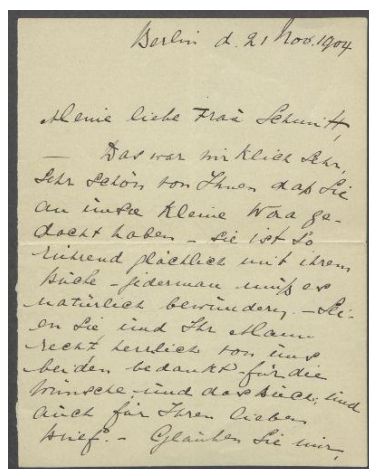 Berlin d. 21 Nov. 1904
Meine liebe Frau Schmitt,
Das war wirklich sehr,
sehr schön von Ihnen daß Sie
an unsre kleine Nora ge-
dacht haben – sie ist so
rührend glücklich mit ihrem
Buche – jederman muß es
natürlich bewundern. – Sei-
en Sie und Ihr Mann
recht herzlich von uns
beiden bedankt für die
Wünsche und das Buch, und
auch für Ihren lieben
Brief. – Glauben Sie mir,